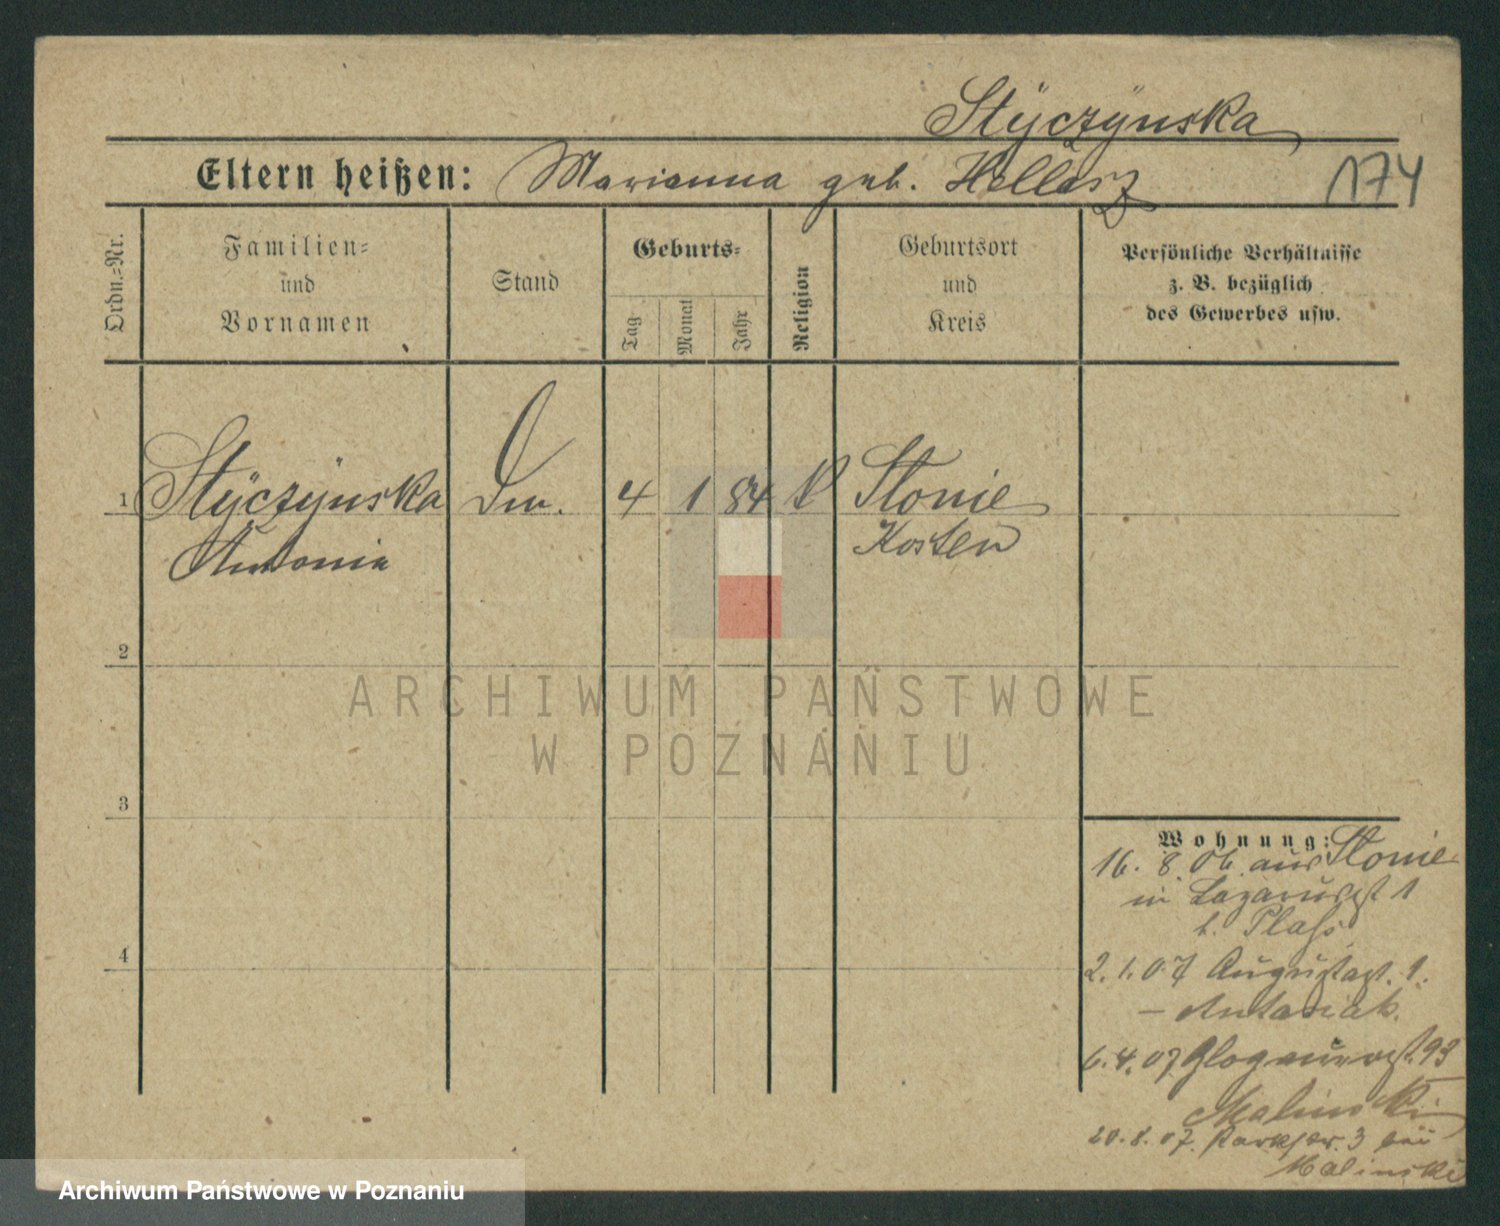 Styczynska
Eltern heißen: Marianna geb. Hellasz
174
Ordn.-Nr.
Familien-
und
Vornamen
Stand
Geburts-
Tag
Monat
Jahr
Religion
Geburtsort
und
Kreis
Persönliche Verhältnisse
z. B. bezüglich
des Gewerbes usw.
1 Styczynska
Antonia
4 1 84 K Slonie
Kosten
2
3
4
ARCHIWUM PAŃSTWOWE
W POZNANIU
Wohnung:
16. 8. 06. aus Slonie
in Lazarusst 1
b.
2. 1. 07 Augustast. 1.
– Antoniak.
6. 4. 07 Glogauerst. 93
Malinski
20. 8. 07. Parkstr. 3 bei
Malinski
Archiwum Państwowe w Poznaniu